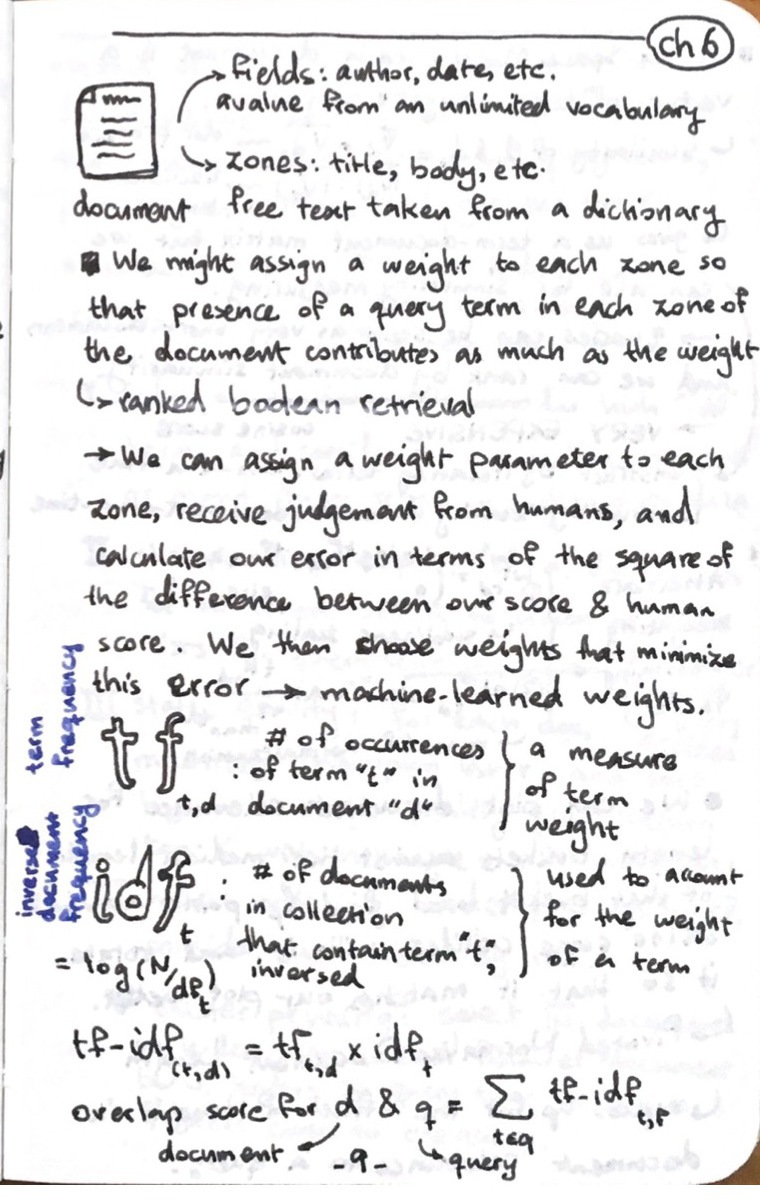 ch 6
fields: author, date, etc.
a value from an unlimited vocabulary
zones: title, body, etc.
document free text taken from a dictionary
We might assign a weight to each zone so
that presence of a query term in each zone of
the document contributes as much as the weight
↳ ranked boolean retrieval
→ We can assign a weight parameter to each
zone, receive judgement from humans, and
calculate our error in terms of the square of
the difference between our score & human
score. We then choose weights that minimize
this error → machine-learned weights.
term
frequency
tf t,d : # of occurrences
of term "t" in
document "d"
a measure
of term
weight
inverse
document
frequency
idf t : # of documents
in collection
that contain term "t",
inversed
used to account
for the weight
of a term
= log(N/df t)
tf-idf (t,d) = tf t,d x idf t
overlap score for d & q = ∑ t∈q tf-idf
document query
-9-